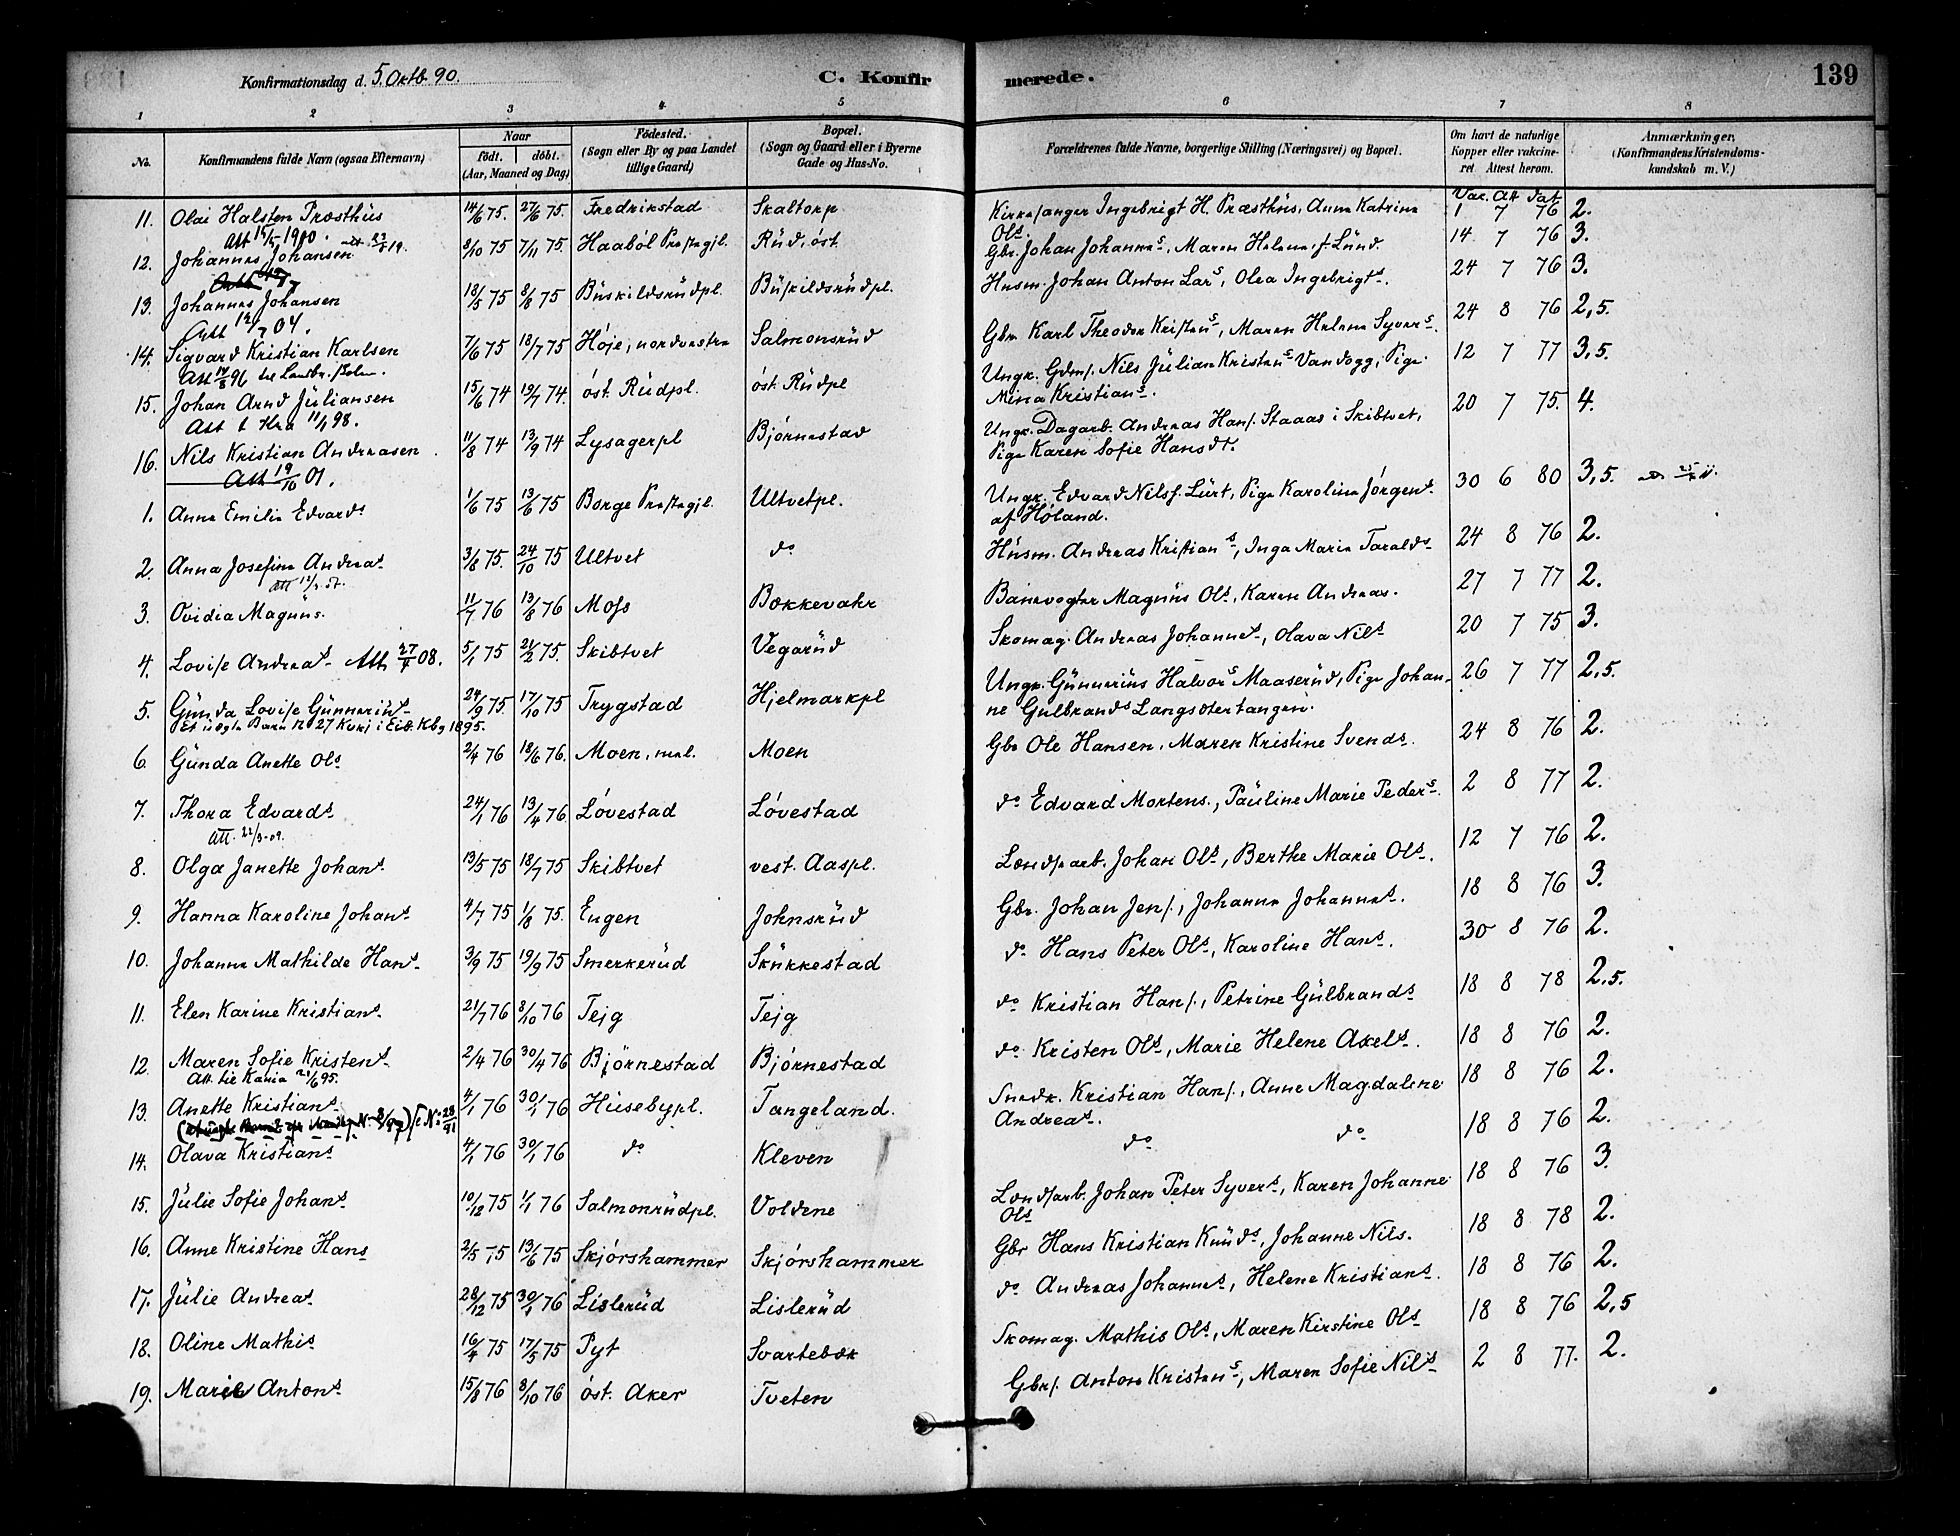 Konfirmationsdag d. 5. Oktb. 90.
C. Konfirmerede.
139
1 2 3 4 5 6 7 8
No.
Konfirmandens fulde Navn (ogsaa Efternavn)
Naar
födt. döbt.
(Aar, Maaned og Dag)
Födested.
(Sogn eller By og paa Landet
tillige Gaard)
Bopæl.
(Sogn og Gaard eller i Byerne
Gade og Hus-No.
Forældrenes fulde Navne, borgerlige Stilling (Næringsvei) og Bopæl.
Om havt de naturlige
Kopper eller vakcine-
ret Attest herom.
Anmærkninger,
(Konfirmandens Kristendoms-
kundskab m. V.)
Vac. Att dat
11. Olai Halsten Præsthüs 14/6 75. 27/6 75. Fredrikstad Skaltorp Kirkesanger Ingebrigt H. Præsthüs, Anna Katrina Ols 1 7 76 2.
Att 15/5 1900.
12. Johannes Johansen 8/10 75 7/11 75 Haaböl Præstegjl. Rüd, öst. Gbr. Johan Johannes, Maren Helene f. Lünd. 14 7 76 3.
13. Johannes Johansen 18/5 75 8/8 75 Büskildsrüdpl. Büskildsrüdpl. Husm. Johan Anton Lars, Olea Ingebrigts. 24 7 76 3.
Att 12/7 04.
14. Sigvard Kristian Karlsen 7/6 75 18/7 75 Höje, nordenstra Salmonsrüd Gbr. Karl Theodor Kristens, Maren Helene Syvers. 24 8 76 2,5.
Att 14/8 96 til Landbr. skolen.
15. Johan Arnd Jüliansen 15/6 74 19/7 74. öst. Rüdpl. öst. Rüdpl Ungk. Gdms. Nils Jülian Kristens Vandogg, Pige
Mina Kristians. 12 7 77 3,5.
Att t Kra 11/1 98.
16. Nils Kristian Andreasen 11/8 74 13/9 74 Lysagerpl Björnestad Ungk. Dagarb. Andreas Hans. Staaas i Skibtvet,
Pige Karen Sofie Hansdt. 20 7 75. 4.
Att 19/10 01.
1. Anna Emilie Edvards 1/6 75 13/6 75 Borge Præstegjl. Ultvetpl. Ungk. Edvard Nilsf. Lürt, Pige Karoline Jörgens.
af Höland. 30 6 80 3,5.
2. Anna Josefine Andreas 3/8 75. 24/10 75 Ultvet do Hüsm. Andreas Kristians, Inga Marie Taralds 24 8 76 2.
3. Ovidia Magnüs. 11/7 76 13/8 76 Moss Bækkevahr Banevogter Magnüs Ols, Karen Andreas. 27 7 77 2.
4. Lovise Andreas Att 27/4 08. 5/1 75 21/2 75. Skibtvet Vegarüd Skomag. Andreas Johannes, Olava Nils 20 7 75 3.
5. Günda Lovise Günneriüs 24/9 75. 17/10 75 Trygstad Hjelmarkpl Ungk. Günnerius Halvors Maaserüd, Pige Johan-
ne Gulbrands Langsætertangen. 26 7 77 2,5.
6. Günda Anette Ols 2/4 76 18/6 76. Moen, mel. Moen Gbr Ole Hansen, Maren Kristine Svends. 24 8 76 2.
7. Thora Edvards. 24/1 76 13/4 76 Lövestad Lövestad do Edvard Mortens., Päuline Marie Peders. 2 8 77 2.
Att. 22/3-09.
8. Olga Janette Johans 13/5 75 18/7 75 Skibtvet vest. Aaspl. Landsarb. Johan Ols, Berthe Marie Ols. 12 7 76 2.
9. Hanna Karoline Johans 4/7 75 1/8 75. Eugen Johnsrüd Gbr. Johan Jens., Johanne Johannes. 18 8 76 3.
10. Johanne Mathilde Hans 3/9 75 19/9 75 Smerkerüd Skükkestad do Hans Peter Ols, Karoline Hans. 30 8 76 2.
11. Elen Karine Kristians 21/7 76 8/10 76 Tejg Tejg do Kristian Hans., Petrine Gülbrands 18 8 78 2,5.
12. Maren Sofie Kristens 2/4 76 30/4 76 Björnestad Björnestad do Kristen Ols, Marie Helene Axels. 18 8 76 2.
13. Anette Kristians 4/1 76 30/1 76 Hüsebypl. Tangeland. Snedk. Kristian Hans., Anne Magdalene
Andreas. 18 8 76 2.
14. Olava Kristians 4/1 76 30/1 76 do Kleven do do 18 8 76 2.
15. Jülie Sofie Johans 10/12 75 1/1 76 Salmonrüdpl. Voldene Landsarb. Johan Peter Syvers, Karen Johanne
Ols 18 8 76 3.
16. Anne Kristine Hans 2/5 75 13/6 75 Skjörshammer Skjörshammer Gbr Hans Kristian Knüds, Johanne Nils. 18 8 78 2.
17. Jülie Andreas 28/12 75 30/1 76 Lislerüd Lislerüd do Andreas Johannes, Helene Kristians. 18 8 76 2.
18. Oline Mathis 16/4 75 17/5 75 Pyt Svartebæk Skomag. Mathis Ols, Maren Kirstine Ols 18 8 76 2,5
19. Marie Antons 15/8 76 8/10 76 öst. Aker Tveten Gbrs. Anton Kristens, Maren Sofie Nils 2 8 77. 2.